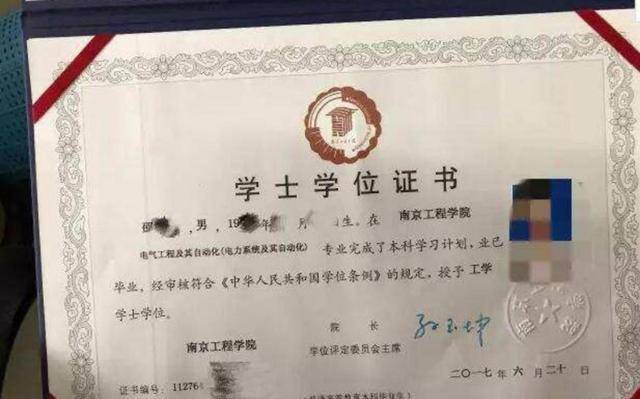 学士学位证书
, 男, 19 年 月 日生。在 南京工程学院
电气工程及其自动化(电力系统及其自动化) 专业完成了本科学习计划，业已
毕业，经审核符合《中华人民共和国学位条例》的规定，授予 工学
学士学位。
院 长
南京工程学院 学位评定委员会主席
二〇一七年 六 月 二十 日
证书编号: 11276
(普通高等教育本科毕业生)